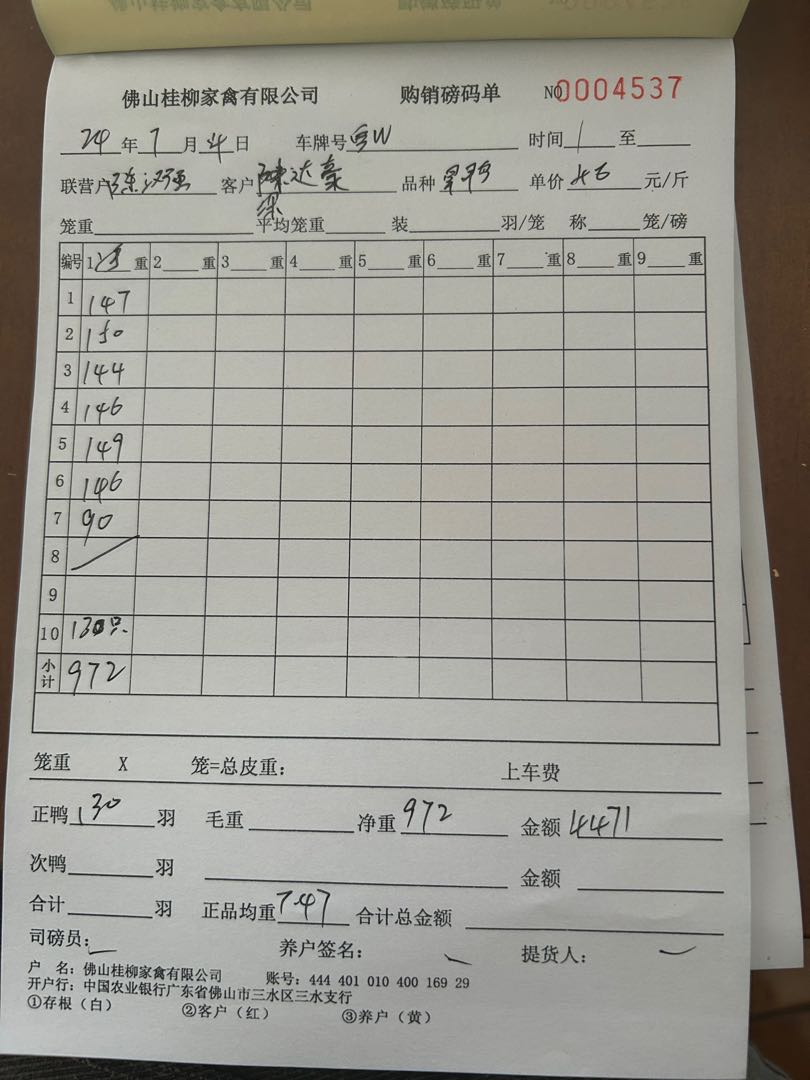 佛山桂柳家禽有限公司 购销磅码单 NO 0004537
24年7月4日 车牌号 时间 至
联营户 客户 陈达豪 品种 单价 4.6 元/斤
笼重 平均笼重 装 羽/笼 称 笼/磅
编号 1 重 2 重 3 重 4 重 5 重 6 重 7 重 8 重 9 重
1 147
2 150
3 144
4 146
5 149
6 146
7 90
8
9
10 130只
小计 972
笼重 X 笼=总皮重: 上车费
正鸭 130 羽 毛重 净重 972 金额 4471
次鸭 羽 金额
合计 羽 正品均重 7.47 合计总金额
司磅员: 养户签名: 提货人:
户 名: 佛山桂柳家禽有限公司 账号: 444 401 010 400 169 29
开户行: 中国农业银行广东省佛山市三水区三水支行
①存根(白) ②客户(红) ③养户(黄)